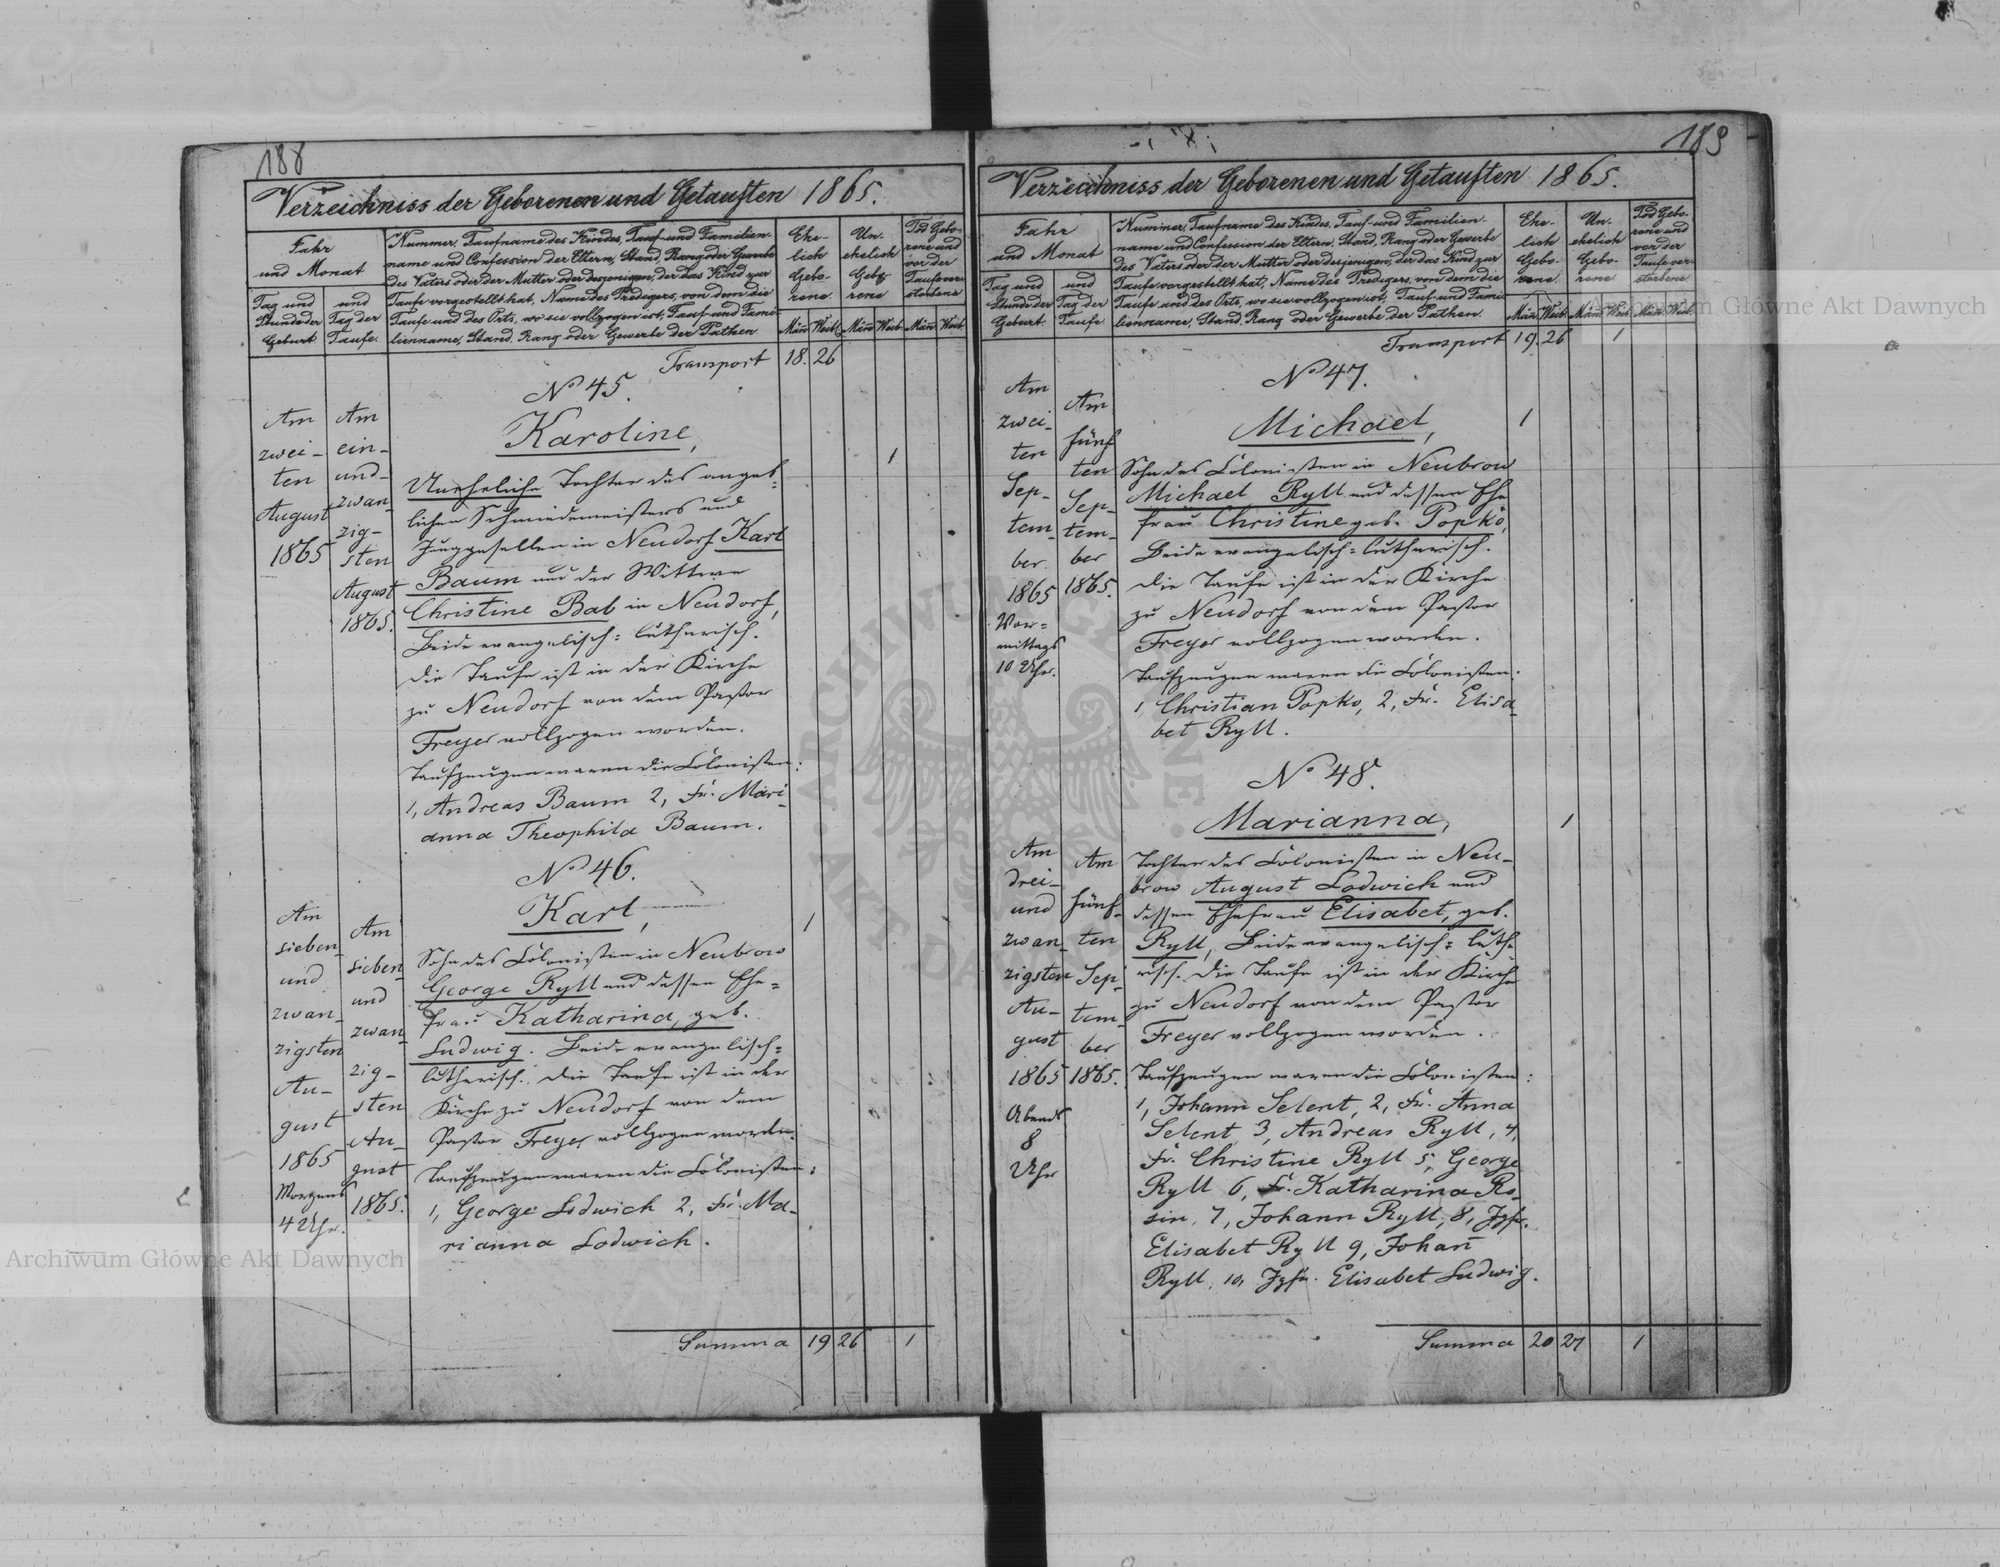 188
Verzeichniss der Geborenen und Getauften 1865.
Jahr
und Monat
Tag und
Stunde der
Geburt.
und
Tag der
Taufe.
Nummer, Taufname des Kindes, Tauf- und Familien-
name und Confession der Eltern, Stand, Rang oder Gewerbe
des Vaters oder der Mutter oder desjenigen, der das Kind zur
Taufe vorgestellt hat, Name des Predigers, von dem die
Taufe und des Orts, wo sie vollzogen ist, Tauf- und Fami-
lienname, Stand, Rang oder Gewerbe der Pathen.
Ehe-
lich
Gebo-
rene.
Un-
ehelich
Gebo-
rene
Tod Gebo-
rene und
vor der
Taufe ver-
storbene
Män Weib. Män Weib. Män Weib.
Transport 18. 26
No 45.
Karoline, 1
Am
zwei-
ten
August
1865
Am
ein-
und-
zwan-
zig-
sten
August
1865.
Uneheliche Tochter des angeb-
lichen Schmiedemeisters und
Junggesellen in Neudorf Karl
Baum und der Wittwe
Christine Bab in Neudorf,
Beide evangelisch=lutherisch.
Die Taufe ist in der Kirche
zu Neudorf von dem Pastor
Freyer vollzogen worden.
Taufzeugen waren die Colonisten:
1, Andreas Baum 2, Fr. Mari-
anna Theophila Baum.
No 46.
Karl, 1
Am
sieben-
und
zwan-
zigsten
Au-
gust
1865
Morgens
4 Uhr.
Am
sieben-
und
zwan-
zig-
sten
Au-
gust
1865.
Sohn des Colonisten in Neubrow
George Ryll und dessen Ehe=
frau Katharina, geb.
Ludwig. Beide evangelisch=
lutherisch. Die Taufe ist in der
Kirche zu Neudorf von dem
Pastor Freyer vollzogen worden.
Taufzeugen waren die Colonisten:
1, George Lodwich 2, Fr. Ma-
rianna Lodwich.
Summa 19 26 1
189
Verzeichniss der Geborenen und Getauften 1865.
Jahr
und Monat
Tag und
Stunde der
Geburt.
und
Tag der
Taufe.
Nummer, Taufname des Kindes, Tauf- und Familien-
name und Confession der Eltern, Stand, Rang oder Gewerbe
des Vaters oder der Mutter oder desjenigen, der das Kind zur
Taufe vorgestellt hat, Name des Predigers, von dem die
Taufe und des Orts, wo sie vollzogen ist, Tauf- und Fami-
lienname, Stand, Rang oder Gewerbe der Pathen.
Ehe-
lich
Gebo-
rene.
Un-
ehelich
Gebo-
rene.
Tod Gebo-
rene und
vor der
Taufe ver-
storbene.
Män Weib. Män Weib. Män Weib.
Transport 19. 26 1
No 47.
Michael, 1
Am
zwei-
ten
Sep-
tem-
ber.
1865
Vor=
mittags
10 Uhr.
Am
fünf
ten
Sep-
tem-
ber
1865.
Sohn des Colonisten in Neubrow
Michael Ryll und dessen Ehe
frau Christine geb. Popko,
Beide evangelisch=lutherisch.
Die Taufe ist in der Kirche
zu Neudorf von dem Pastor
Freyer vollzogen worden.
Taufzeugen waren die Colonisten:
1, Christian Popko, 2, Fr. Elisa-
bet Ryll.
No 48.
Marianna, 1
Am
drei-
und
zwan-
zigsten
Au-
gust
1865
Abends
8
Uhr
Am
fünf-
ten
Sep-
tem-
ber
1865.
Tochter des Colonisten in Neu-
brow August Lodwich und
dessen Ehefrau Elisabet, geb.
Ryll, Beide evangelisch=luthe
risch. Die Taufe ist in der Kirche
zu Neudorf von dem Pastor
Freyer vollzogen worden.
Taufzeugen waren die Colonisten:
1, Johann Selent, 2, Fr. Anna
Selent 3, Andreas Ryll, 4,
Fr. Christine Ryll 5, George
Ryll 6, Fr. Katharina Ro-
sin, 7, Johann Ryll, 8, Jgfr.
Elisabet Ryll 9, Johañ
Ryll, 10, Jgfr. Elisabet Ludwig.
Summa 20 27 1
Archiwum Główne Akt Dawnych
Archiwum Główne Akt Dawnych